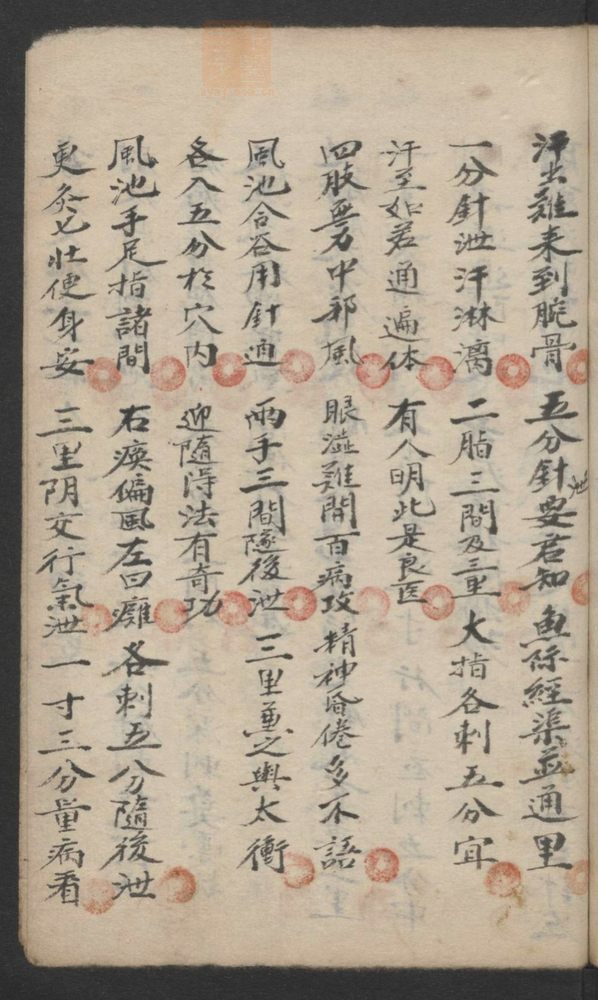 汗出難来到腕骨 五分針泄要君知 魚际經渠並通里
一分針泄汗淋漓 二脂三間及三里 大指各刺五分宜
汗至如若通遍体 有人明此是良医
四肢無力中邪風 眼澁難開百病攻 精神昏倦多不語
風池合谷用針通 両手三間隨後泄 三里兼之與太衝
各入五分於穴内 迎隨得法有奇功
風池手足指諸間 右瘓偏風左曰癱 各刺五分隨後泄
更灸七壮便身安 三里阴交行氣泄 一寸三分量病看